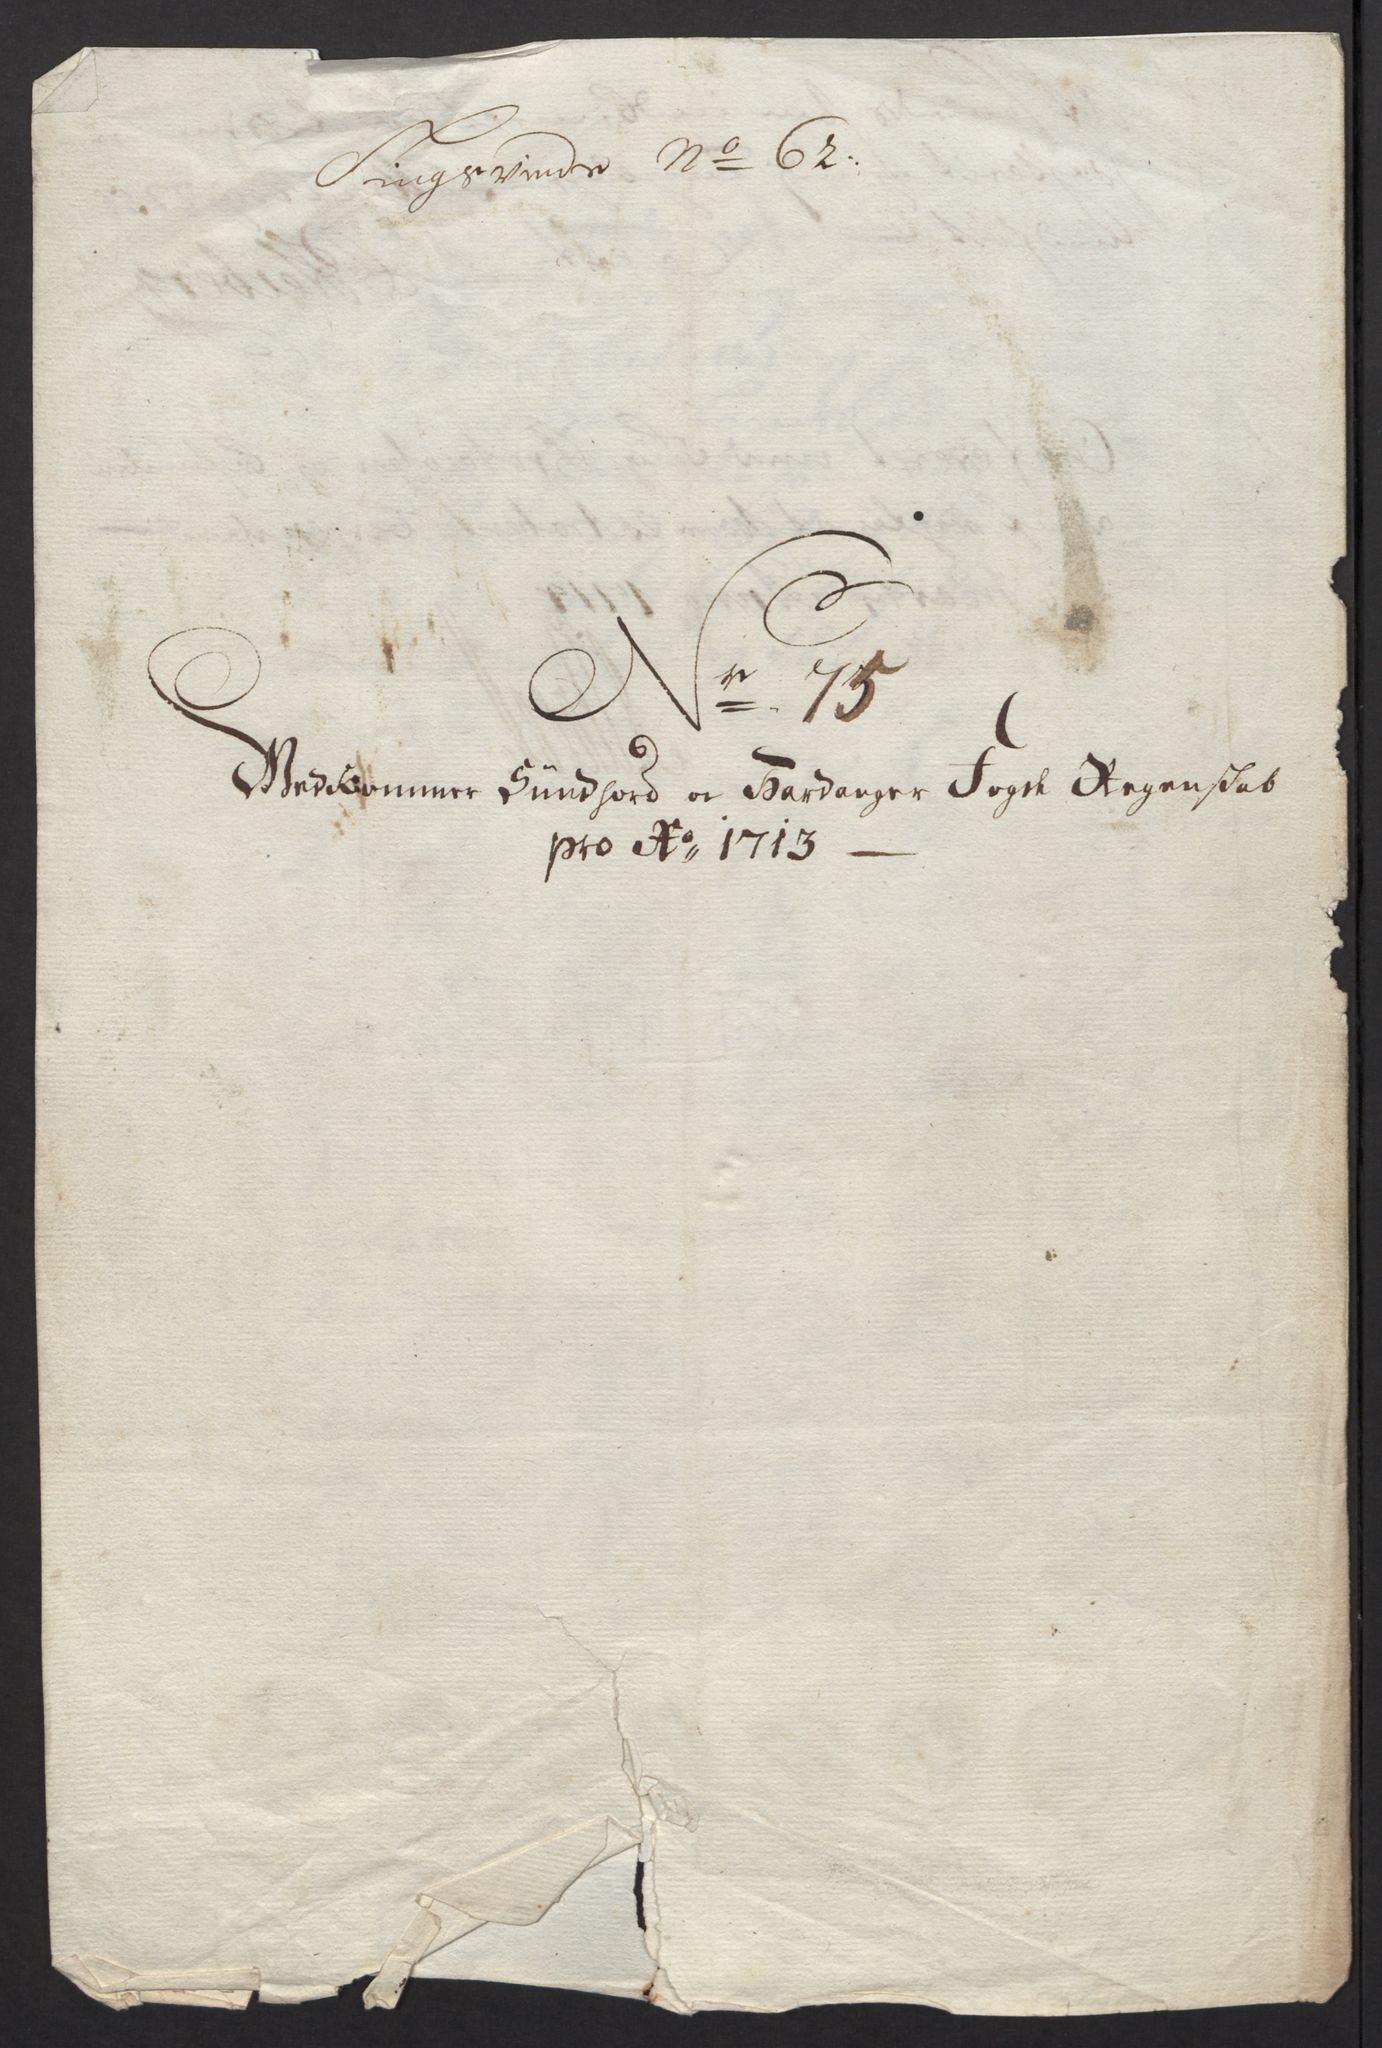 Tingsvinde No 62.
Nr. 75
Vedkommer Sündhord oc Hardanger Fogd. Regenskab
pro Ao, 1713 —